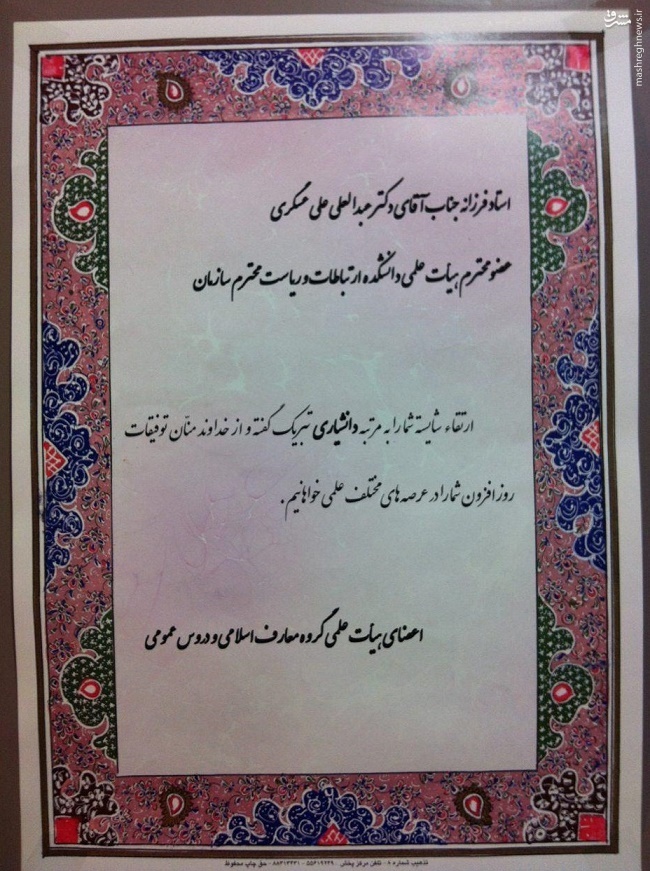 مشرق
mashreghnews.ir
استاد فرزانه جناب آقای دکتر عبدالعلی علی عسگری
عضو محترم هیأت علمی دانشکده ارتباطات و ریاست محترم سازمان
ارتقاء شایسته شما را به مرتبه دانشیاری تبریک گفته و از خداوند منّان توفیقات
روزافزون شما را در عرصه های مختلف علمی خواهانیم .
اعضای هیأت علمی گروه معارف اسلامی و دروس عمومی
تذهیب شماره ۸ - تلفن مرکز پخش - ۵۵۶۱۹۶۲۹ - ۸۸۳۱۳۴۳۱ - حق چاپ محفوظ